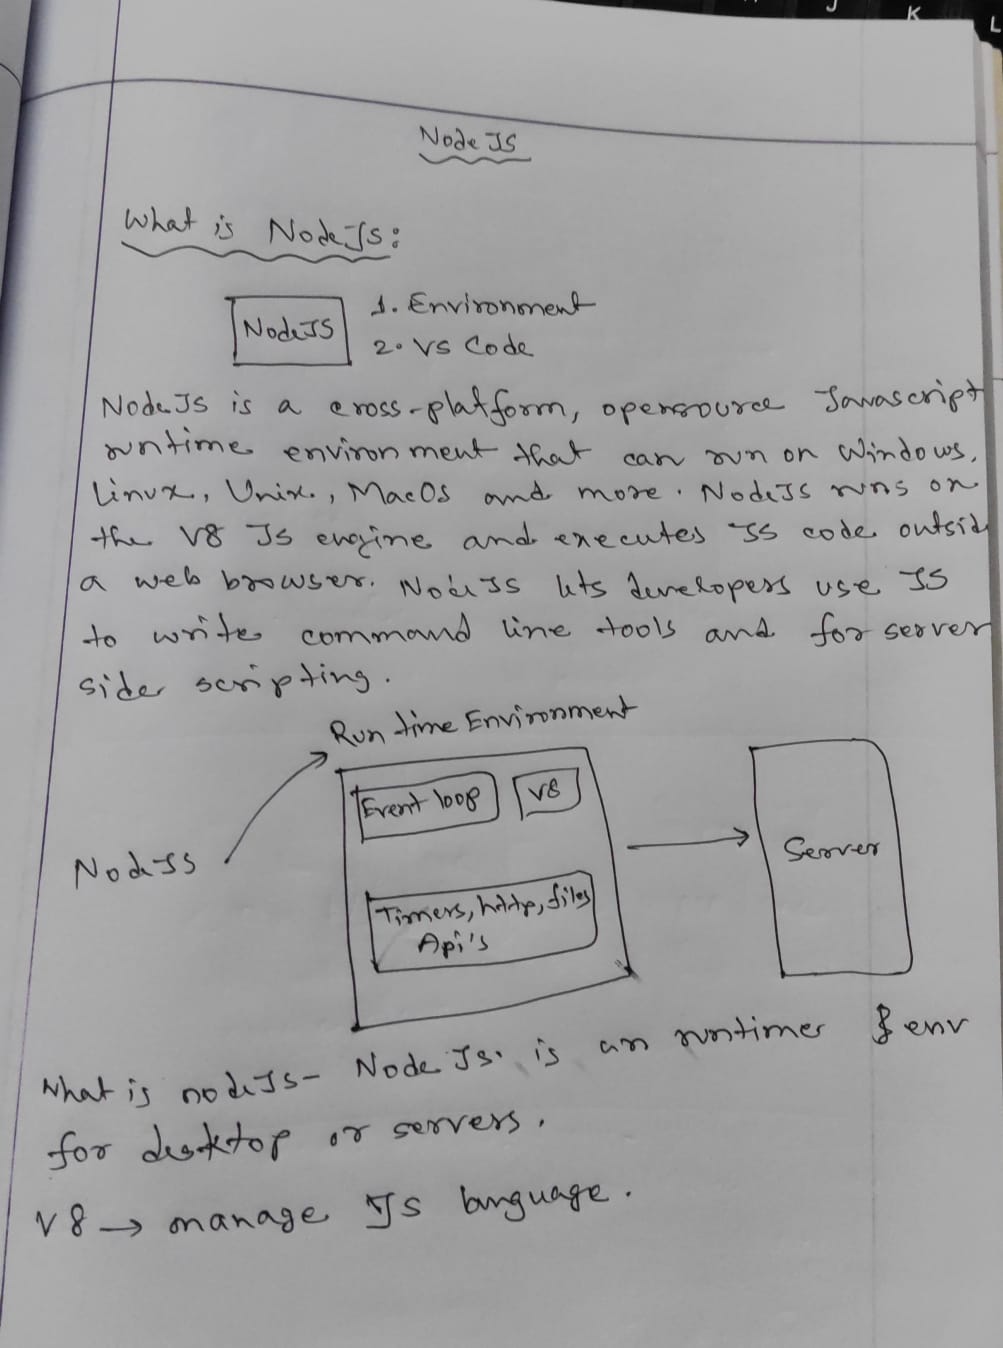 J K L
Node JS
What is NodeJS:
NodeJS
1. Environment
2. VS Code
NodeJS is a cross-platform, opensource Javascript
runtime environment that can run on Windows,
Linux, Unix, MacOS and more. NodeJS runs on
the V8 JS engine and executes JS code outsid
a web browser. NodeJS lets developers use JS
to write command line tools and for server
side scripting.
Run time Environment
Event loop
V8
NodeJS
Server
Timers, http, files
Api's
What is nodeJS- Node JS. is an runtimer & env
for desktop or servers.
V8 → manage JS language.